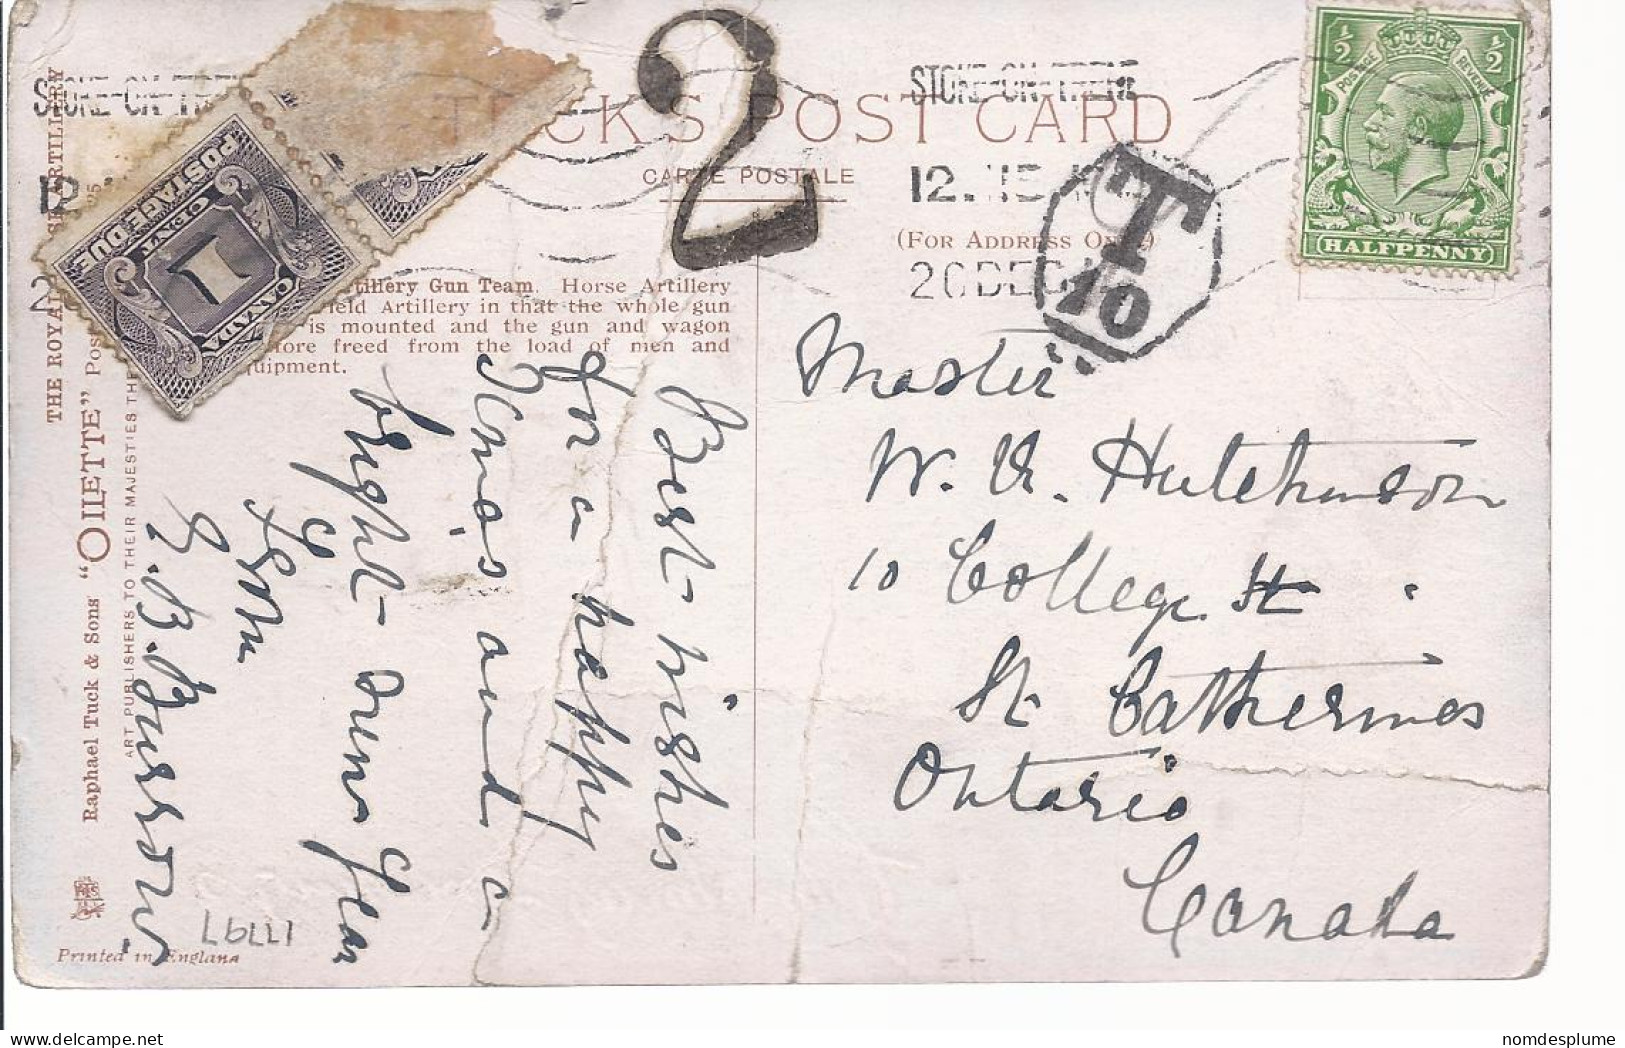 TUCK'S POST CARD
CARTE POSTALE
(FOR ADDRESS ONLY)
STOKE-ON-TRENT
12.15
20 DEC
STOKE-ON-TRE
12
2
2
T
10
½ ½
POSTAGE REVENUE
HALFPENNY
POSTAGE DUE
1
CENT
CANADA
THE ROYAL
SE ARTILLERY
tillery Gun Team. Horse Artillery
ield Artillery in that the whole gun
is mounted and the gun and wagon
fore freed from the load of men and
uipment.
Raphael Tuck & Sons' "OILETTE" Pos
ART PUBLISHERS TO THEIR MAJESTIES THE
Printed in England
Best wishes
for a happy
Xmas and a
bright New Year
From
Burrows
Master
W. Hutchinson
10 College St
St Catherines
Ontario
Canada
17797
nomdesplume